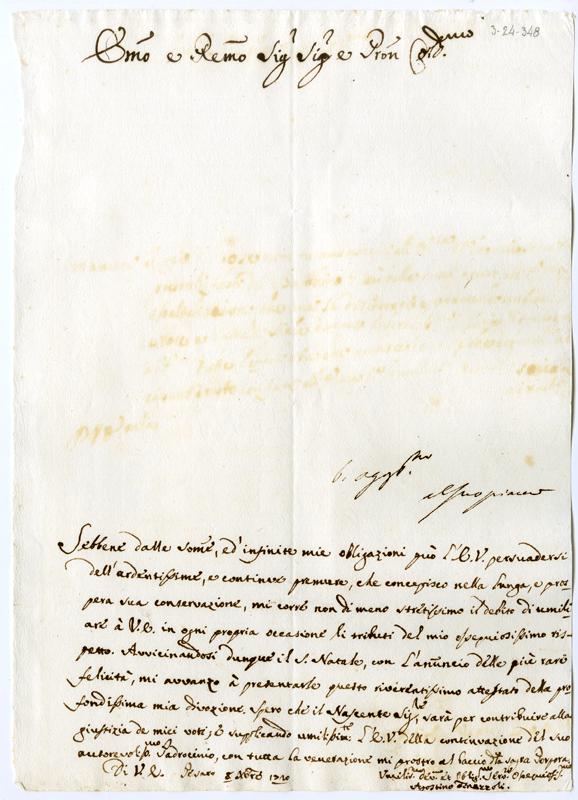 3-24-348
Emo e Remo Sigr Sigr e Pron Colmo
Sebbene dalle some, ed' infinite mie obligazioni può l'E.V. persuadersi
dell'ardentissime, e continue premure, che concepisco nella lunga, e pros-
pera sua conservazione, mi corre non di meno strettissimo il debito di umili-
are à V.E. in ogni propria occasione li tributi del mio ossequiosissimo ris-
petto. Avvicinandosi dunque il S. Natale, con l'annuncio delle più rare
felicità, mi avvanzo à presentarle questo riverentissimo attestato della pro-
fondissima mia divozione, spero che il Nascente Sigre sarà per contribuire alla
giustizia de miei voti, e supplicando umilissimte l'E.V. della continuazione del suo
autorevolissmo Padrocinio, con tutta la venerazione mi prostro al baccio della sacra Porpora
Di V.E. Pesaro 8 Xbre 1720